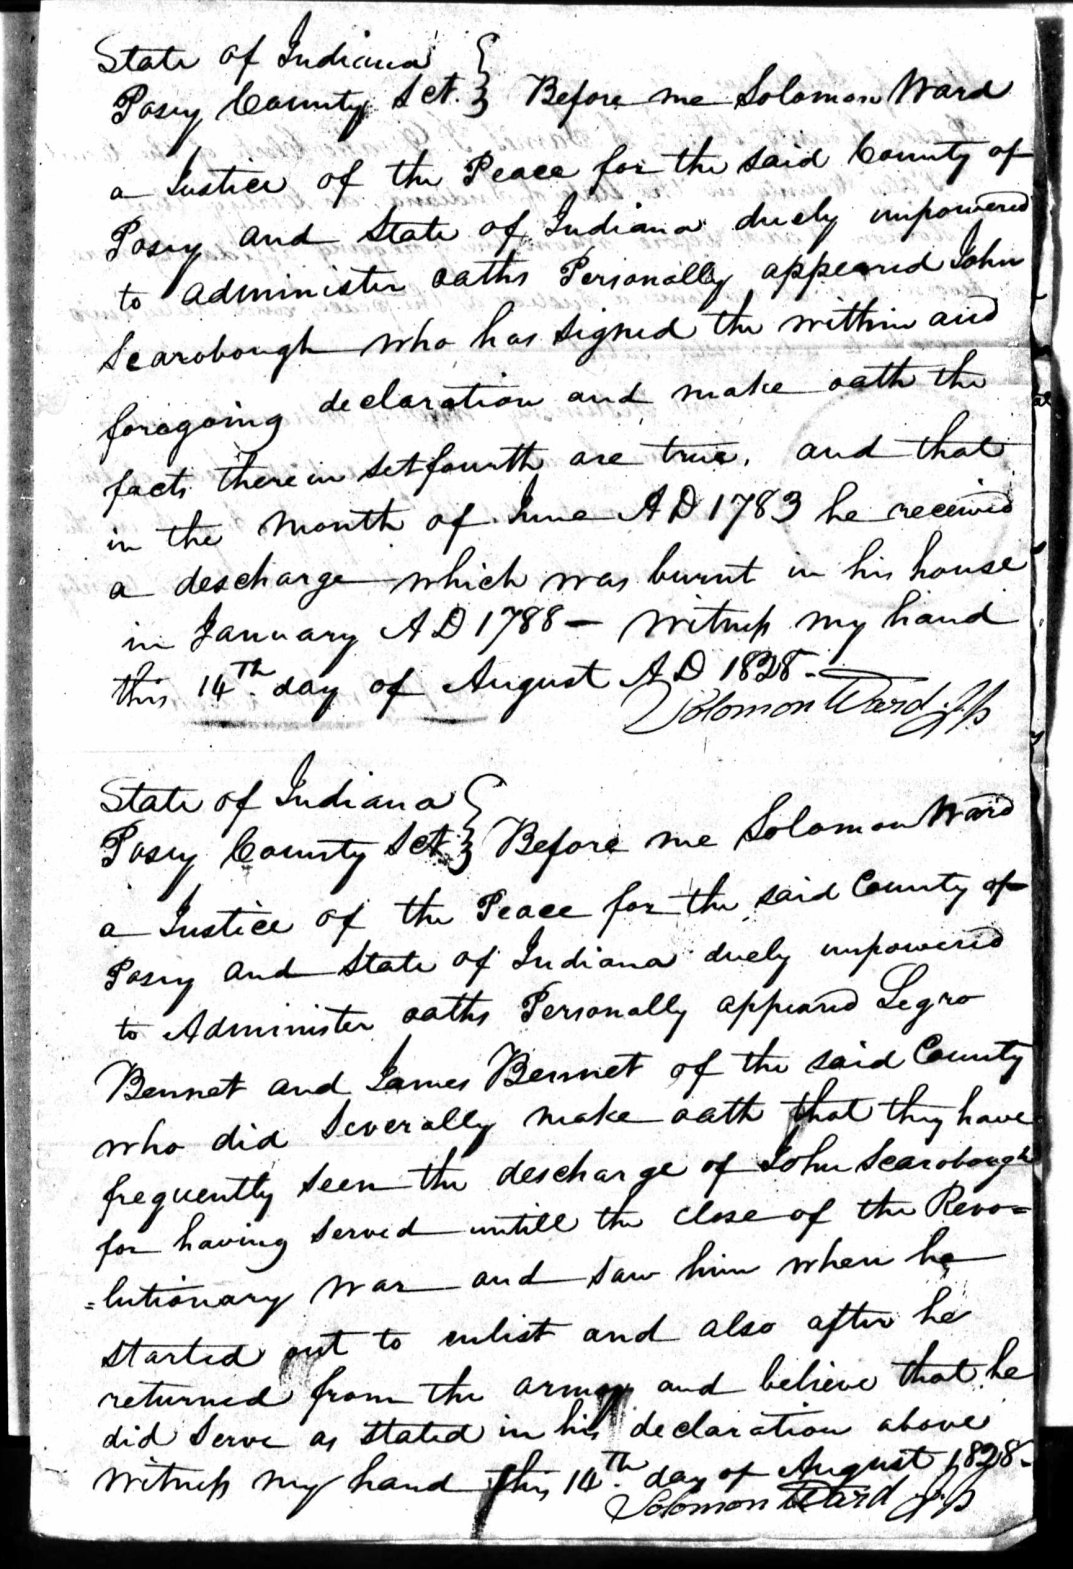 State of Indiana }
Posey County Sct. } Before me Solomon Ward
a Justice of the Peace for the said County of
Posey and State of Indiana duely impowered
to administer oaths Personally appeared John
Scarobough who has signed the within and
foregoing declaration and make oath the
facts therein setfourth are true, and that
in the Month of June AD 1783 he received
a descharge which was burnt in his house
in January AD 1788 — Witness my hand
this 14th day of August AD 1828 -
Solomon Ward J.P
State of Indiana }
Posey County Sct. } Before me Solomon Ward
a Justice of the Peace for the said County of
Posey and State of Indiana duely impowered
to Administer oaths Personally appeared Legro
Bennet and James Bennet of the said County
who did Severally make oath that they have
frequently seen the descharge of John Scarobough
for having served untill the close of the Revo=
=lutionary War and saw him when he
started out to enlist and also after he
returned from the army and believe that he
did Serve as stated in his declaration above
Witness my hand this 14th day of August 1828 -
Solomon Ward J.P